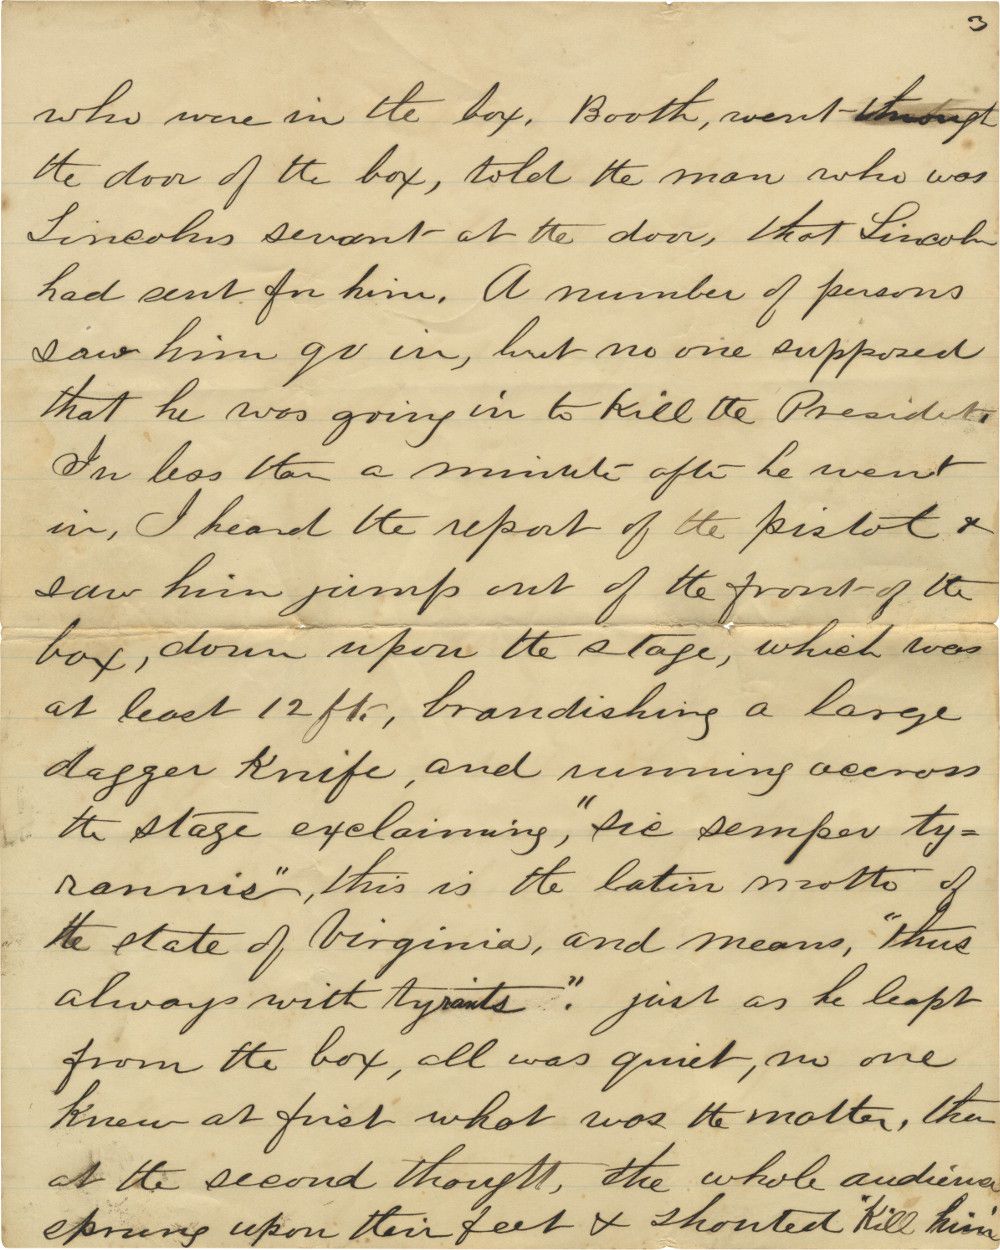 3
who were in the box. Booth, went through
the door of the box, told the man who was
Lincolns servant at the door, that Lincoln
had sent for him. A number of persons
saw him go in, but no one supposed
that he was going in to Kill the President.
In less than a minute after he went
in, I heard the report of the pistol &
saw him jump out of the front of the
box, down upon the stage, which was
at least 12 ft., brandishing a large
dagger Knife, and running accross
the stage exclaiming, "sic semper ty=
rannis", this is the latin motto of
the state of Virginia, and means, "thus
always with tyrants". just as he leapt
from the box, all was quiet, no one
knew at first what was the matter, then
at the second thought, the whole audience
sprung upon their feet & shouted "Kill him